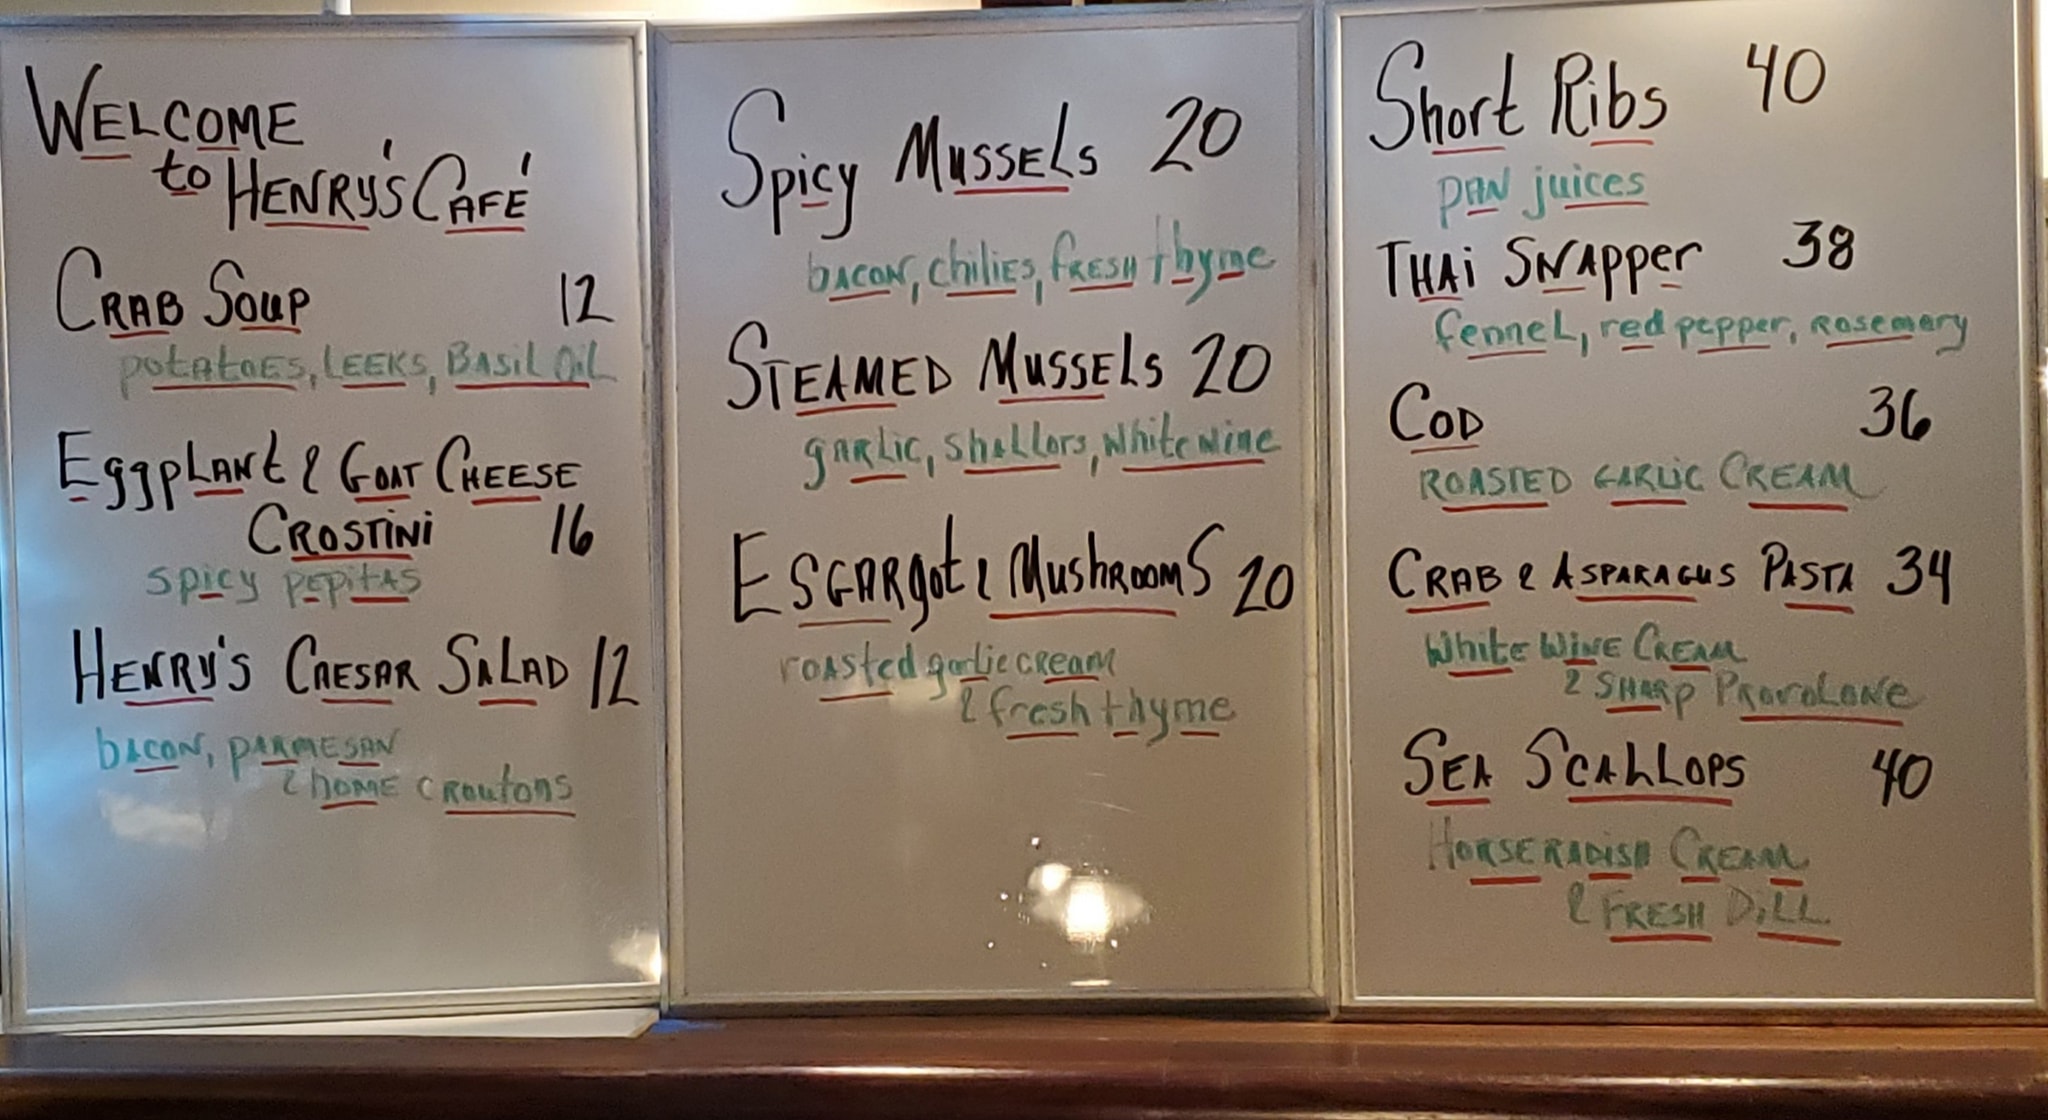 WELCOME
to HENRY'S CAFÉ
CRAB SOUP 12
POTATOES, LEEKS, BASIL OIL
EggpLANt & GOAT CHEESE
CROSTiNi 16
spicy pepitas
HENRY'S CAESAR SALAD 12
bacon, PARMESAN
& home croutons
Spicy Mussels 20
bacon, chilies, fresh thyme
STEAMED MUSSELS 20
garlic, shallots, white wine
ESGARgot & MushrooMS 20
roasted garlic cream
& fresh thyme
Short Ribs 40
pan juices
THAi SNApper 38
fennel, red pepper, rosemary
COD 36
ROASTED GARLIC CREAM
CRAB & ASPARAGUS PASTA 34
White WINE CREAM
& SHARP PROVOLONE
SEA SCALLOPS 40
HORSERADISH CREAM
& FRESH DiLL